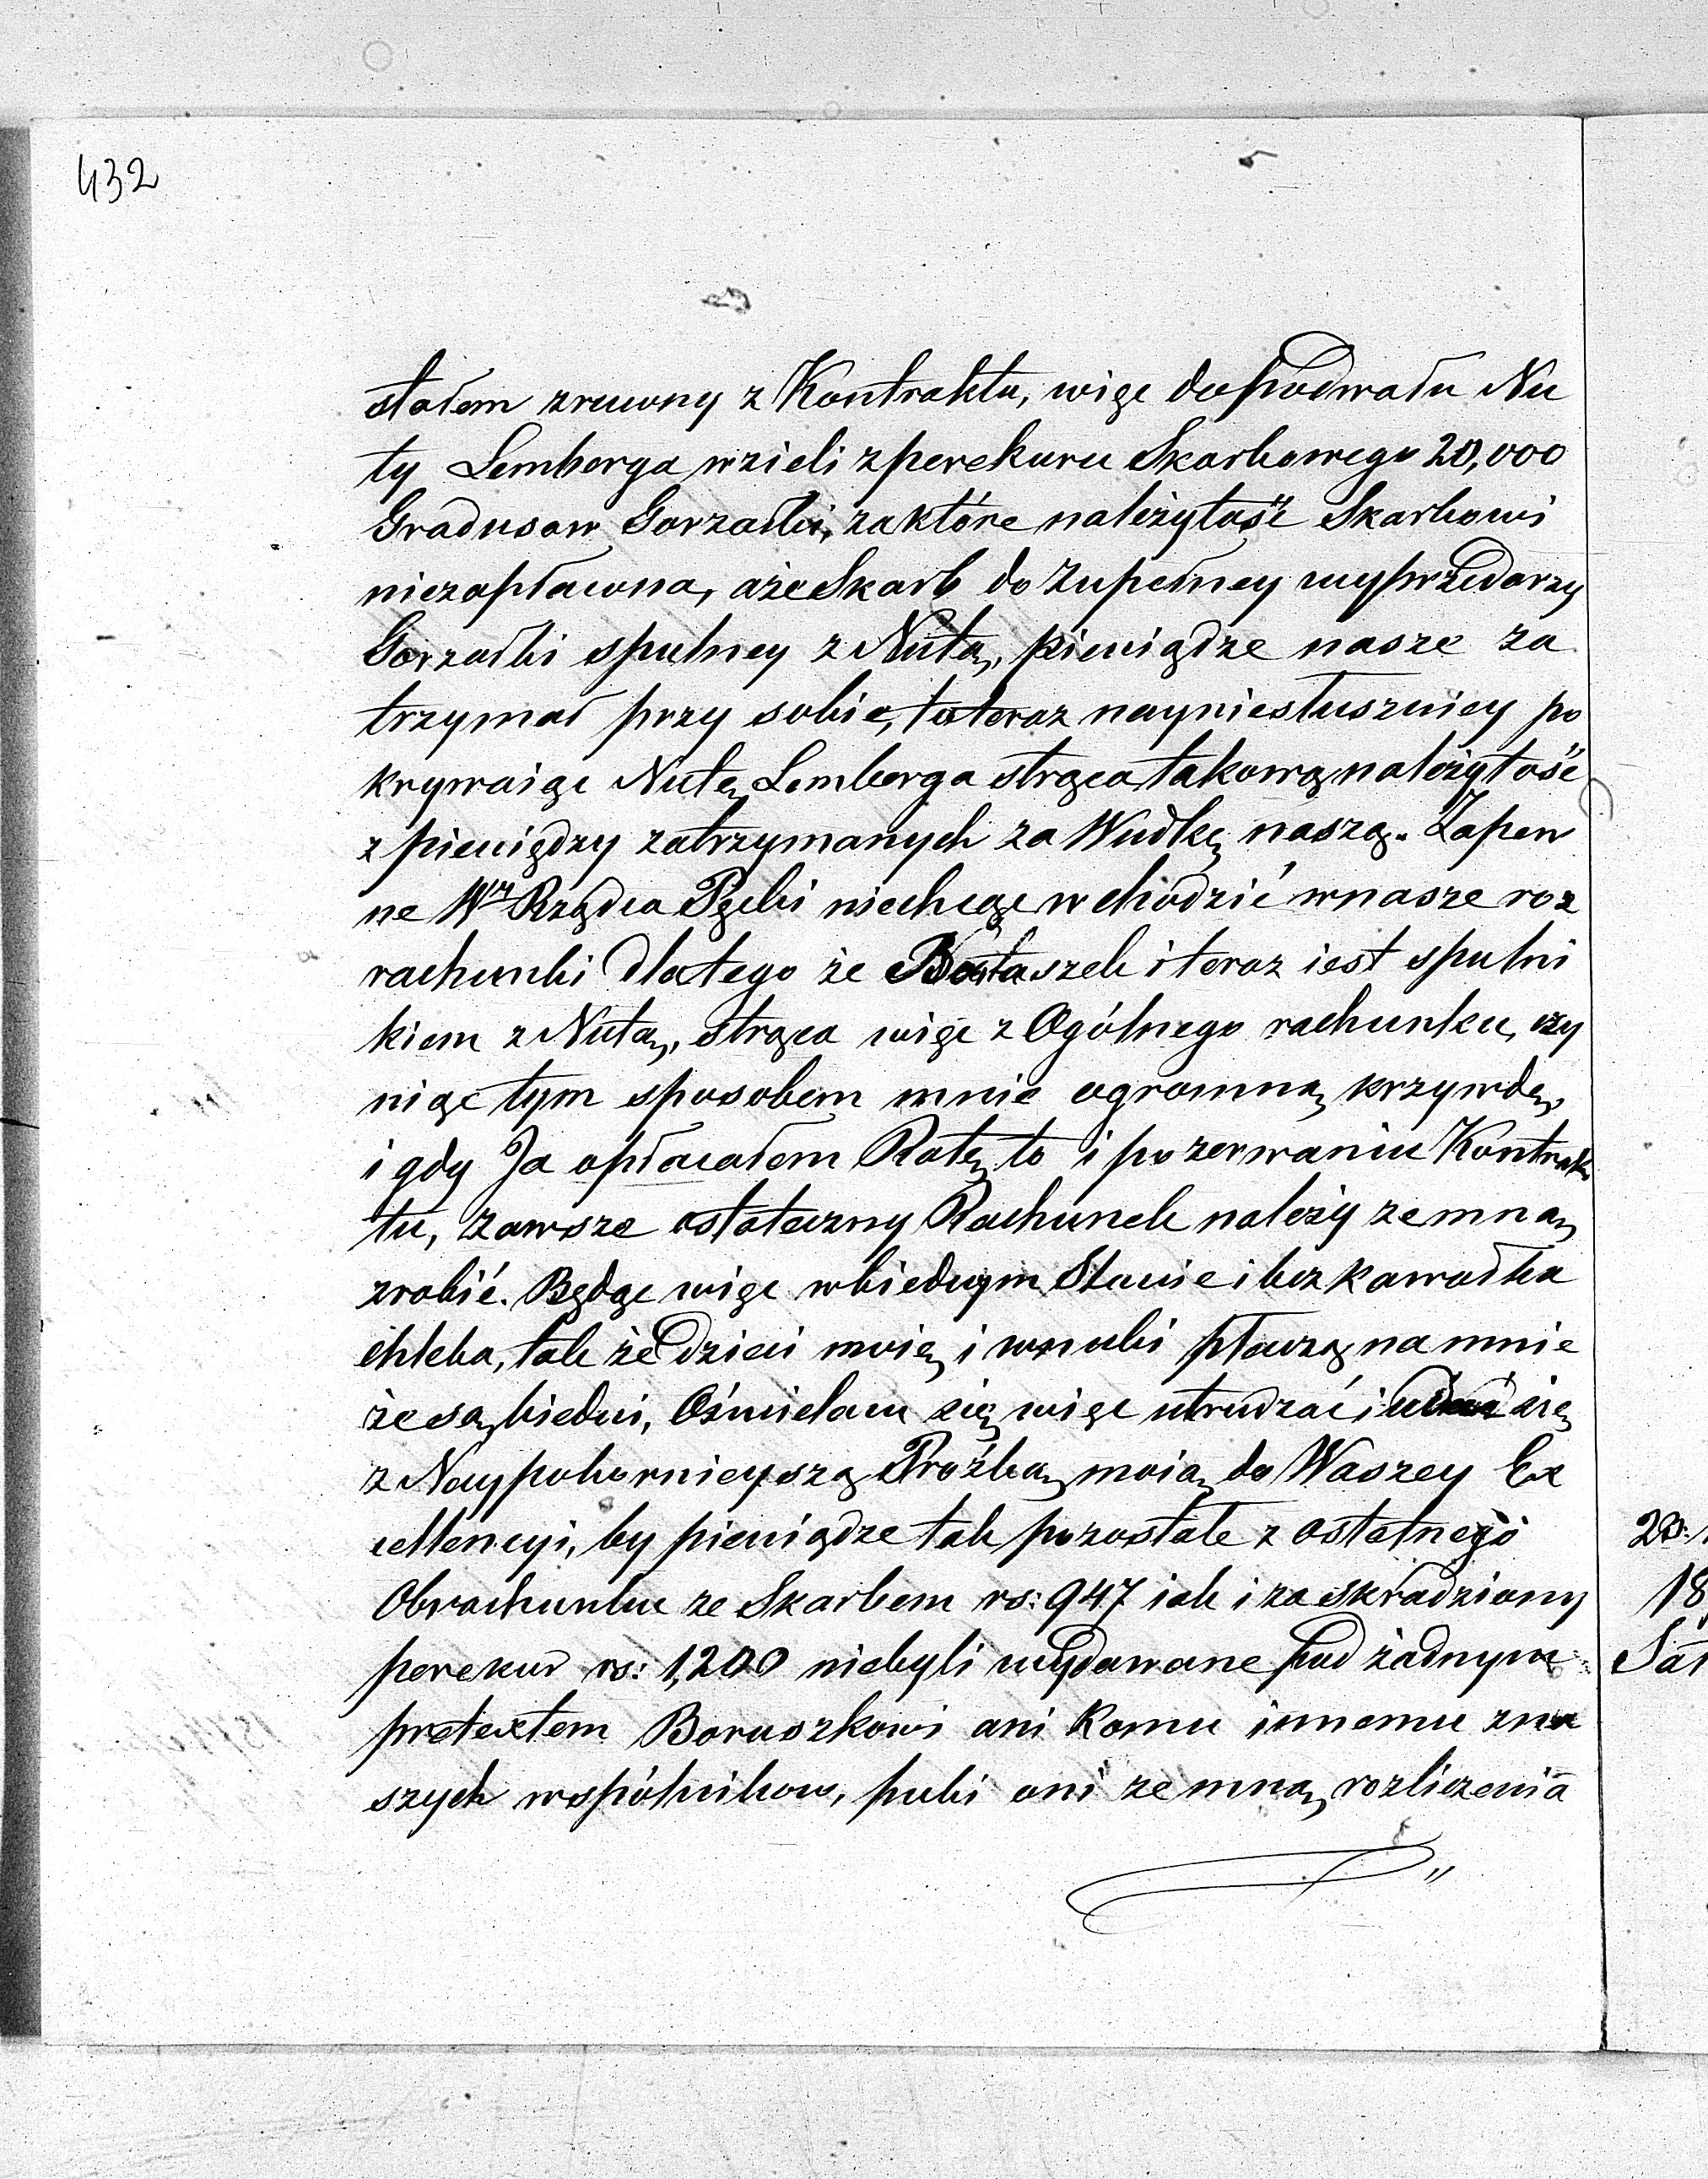 432
stałem zrucony z Kontraktu, więc do podwału Nu
ty Lemberga wzieli z perekuru Skarbowego 20,000
Gradusow Gorzałki, za które należytość Skarbowi
niezapłacona, aże Skarb do zupełney wyprzedarzy
Gorzałki spulney z Nutą, pieniądze nasze za
trzymał przy sobie, to teraz nayniesłuszniey po
krywaiąc Nutę Lemberga strąca takową należytość
z pieniędzy zatrzymanych za Wudkę naszą. Zapew
ne Wny Rządca Pęcki niechcąc wchodzić w nasze roz
rachunki dlatego że szek i teraz iest spulni
kiem z Nutą, strąca więc z Ogólnego rachunku, czy
niąc tym sposobem mnie ogromną krzywdę,
i gdy Ja opłacałem Ratę, to i po zerwaniu Kontrak
tu, zawsze ostateczny Rachunek należy zemną
zrobić. Będąc więc w biednym Stanie i bez kawałka
chleba, tak że dzieci moię i wnuki płaczą na mnie
że są biedni, Ośmielam się więc utrudzać i się
z Naypokornieyszą Proźbą moią do Waszey Ex
cellencyi, by pieniądze tak pozostałe z ostatnego
Obrachunku ze Skarbem rs: 947 iak i za skradziony
perekur rs: 1,200 niebyli wydawane pod żadnym
pretextem Boruszkowi ani Komu innemu zna
szych wspólnikow, puki oni ze mną rozliczenia
20:
18
Sar